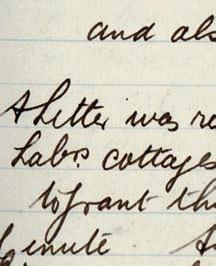 and als
A Letter was re
Labrs cottages
to grant th
minute. A